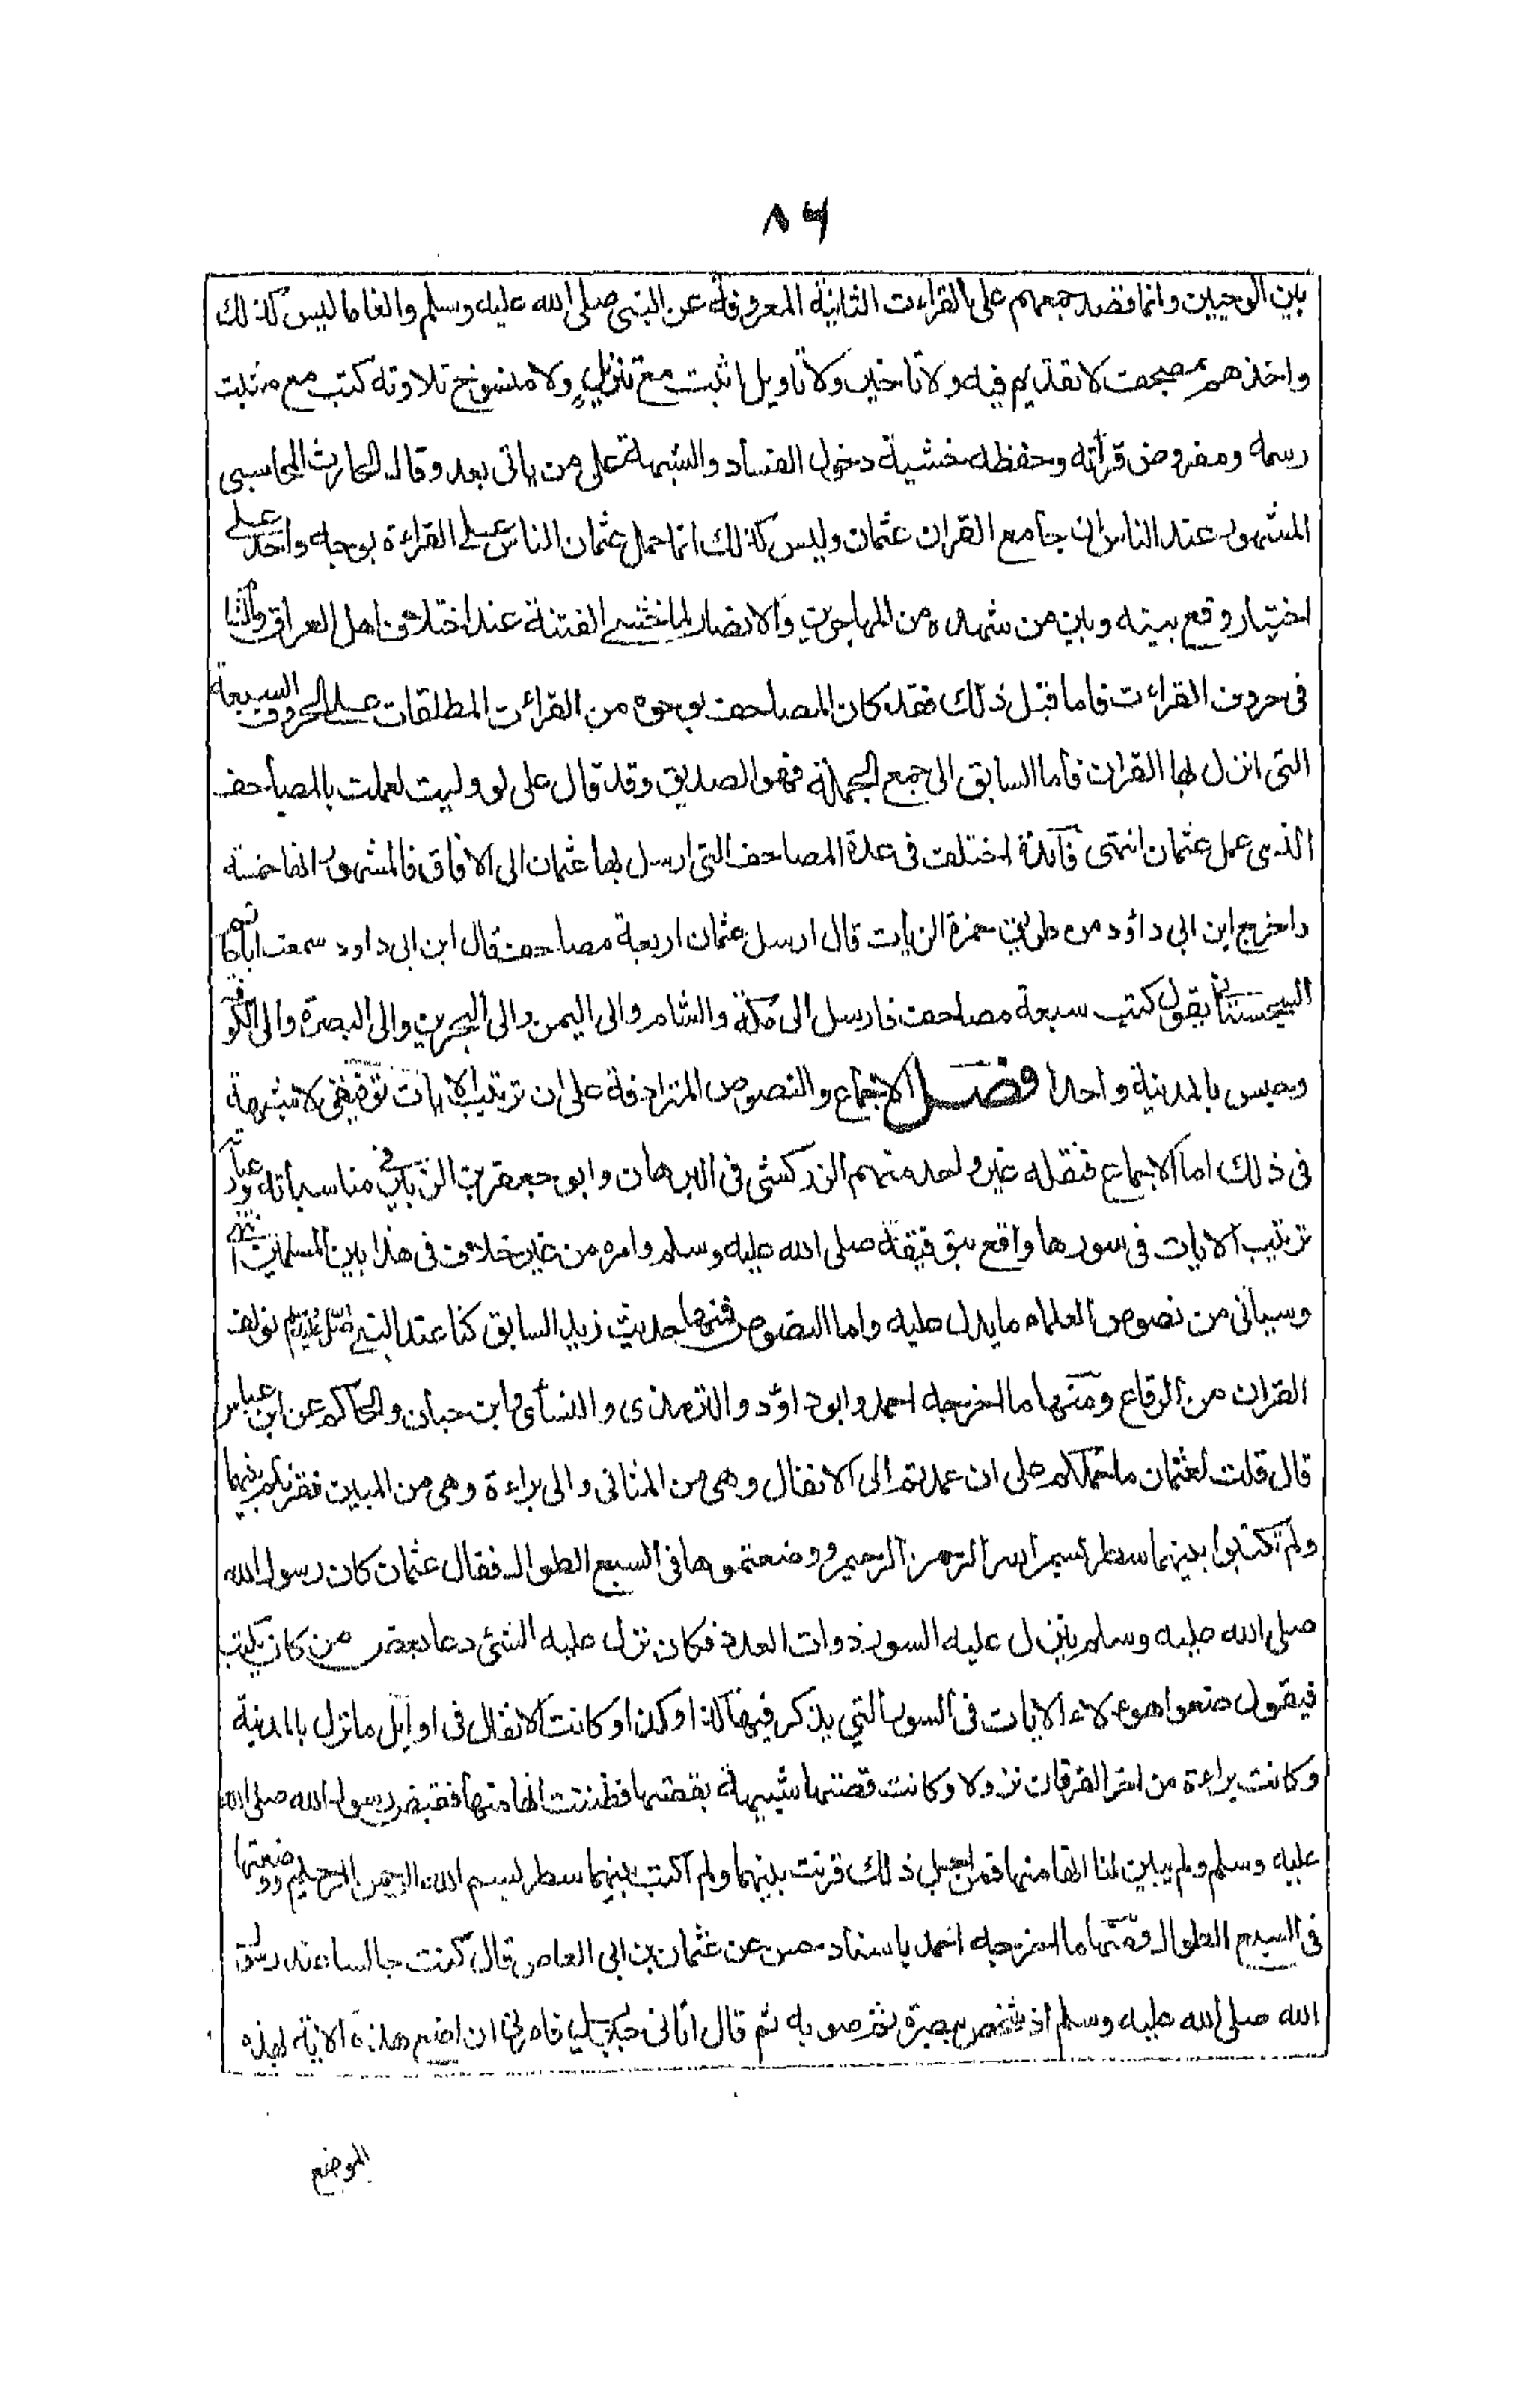 ٨٦
بين اللوحين وانما قصد جمعهم على القراءت الثابتة المعروفة عن النبى صلى الله عليه وسلم والغا ما ليس كذلك
واخذهم بمصحف لا تقديم فيه ولا تاخير ولا تاويل اثبت مع تنزيل ولا منسوخ تلاوته كتب مع مثبت
رسمه ومفروض قرأته وحفظه خشية دخول الفساد والشبهة على من ياتى بعد وقال الحارث المحاسبى
المشهور عند الناس ان جامع القران عثمان وليس كذلك انما حمل عثمان الناس على القراءة بوجه واحد على
اختيار وقع بينه وبين من شهده من المهاجرين والانصار لما خشى الفتنة عند اختلاف اهل العراق والشام
فى حروف القراءت فاما قبل ذلك فقد كان المصاحف بوجوه من القراءت المطلقات على الحروف السبعة
التى انزل بها القران فاما السابق الى جمع الجملة فهو الصديق وقد قال على لو وليت لعملت بالمصاحف
الذى عمل عثمان انتهى فائدة اختلف فى عدة المصاحف التى ارسل بها عثمان الى الافاق فالمشهور انها خمسة
واخرج ابن ابى داؤد من طريق حمزة الزيات قال ارسل عثمان اربعة مصاحف قال ابن ابى داود سمعت اباحاتم
السجستانى يقول كتب سبعة مصاحف فارسل الى مكة والشام والى اليمن والى البحرين والى البصرة والى الكوفة
وحبس بالمدينة واحدا فصل الاجماع والنصوص المترادفة على ان ترتيب الايات توقيفى لا شبهة
فى ذلك اما الاجماع فنقله غير واحد منهم الزركشى فى البرهان وابو جعفر بن الزبير فى مناسباته وعبارته
ترتيب الايات فى سورها واقع بتوقيفه صلى الله عليه وسلم وامره من غير خلاف فى هذا بين المسلمين انتهى
وسياتى من نصوص العلماء ما يدل عليه واما النصوص فمنها حديث زيد السابق كنا عند النبى صلى الله عليه وسلم نولف
القران من الرقاع ومنها ما اخرجه احمد وابوداؤد والترمذى والنسأى وابن حبان والحاكم عن ابن عباس
قال قلت لعثمان ما حملكم على ان عمدتم الى الانفال وهى من المثانى والى براءة وهى من المبين فقرنتم بينهما
ولم تكتبوا بينهما سطر بسم الله الرحمن الرحيم ووضعتموها فى السبع الطوال فقال عثمان كان رسول الله
صلى الله عليه وسلم ينزل عليه السور ذوات العدد فكان نزل عليه الشئ دعا بعض من كان يكتب
فيقول ضعوا هوءلاء الايات فى السور التي يذكر فيها كذا وكذا وكانت الانفال فى اوايل ما نزل بالمدينة
وكانت براءة من اخر القران نزولا وكانت قصتها شبيهة بقصتها فظننت انها منها فقبض رسول الله صلى الله
عليه وسلم ولم يبين لنا انها منها فمن اجل ذلك قرنت بينهما ولم اكتب بينهما سطر بسم الله الرحمن الرحيم ووضعتها
فى السبع الطوال ومنها ما اخرجه احمد باسناد حسن عن عثمان بن ابى العاص قال كنت جالسا عند رسول
الله صلى الله عليه وسلم اذ شخص ببصره ثم صوبه ثم قال اتانى جبريل فامرنى ان اضع هذه الاية بهذه
الموضع